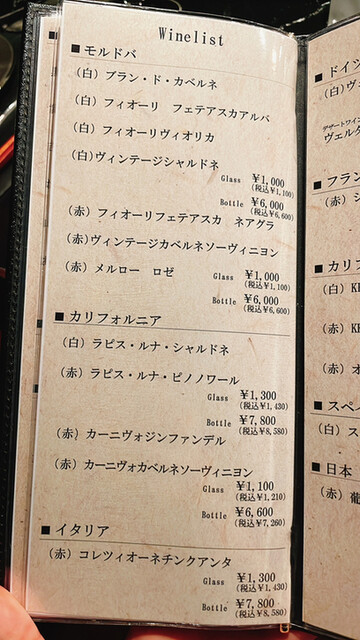 Winelist
■モルドバ
（白）ブラン・ド・カベルネ
（白）フィオーリ　フェテアスカアルバ
（白）フィオーリヴィオリカ
（白）ヴィンテージシャルドネ
Glass ￥1,000
（税込￥1,100）
Bottle ￥6,000
（税込￥6,600）
（赤）フィオーリフェテアスカ　ネアグラ
（赤）ヴィンテージカベルネソーヴィニヨン
（赤）メルロー　ロゼ
Glass ￥1,000
（税込￥1,100）
Bottle ￥6,000
（税込￥6,600）
■カリフォルニア
（白）ラピス・ルナ・シャルドネ
（赤）ラピス・ルナ・ピノノワール
Glass ￥1,300
（税込￥1,430）
Bottle ￥7,800
（税込￥8,580）
（赤）カーニヴォジンファンデル
（赤）カーニヴォカベルネソーヴィニヨン
Glass ￥1,100
（税込￥1,210）
Bottle ￥6,600
（税込￥7,260）
■イタリア
（赤）コレツィオーネチンクアンタ
Glass ￥1,300
（税込￥1,430）
Bottle ￥7,800
（税込￥8,580）
■ドイツ
（白）ヴ
デザートワイン
ヴェル
■フラン
（赤）シ
■カリフ
（白）K
（赤）K
（赤）オ
■スペ
（白）ス
■日本
（赤）葡